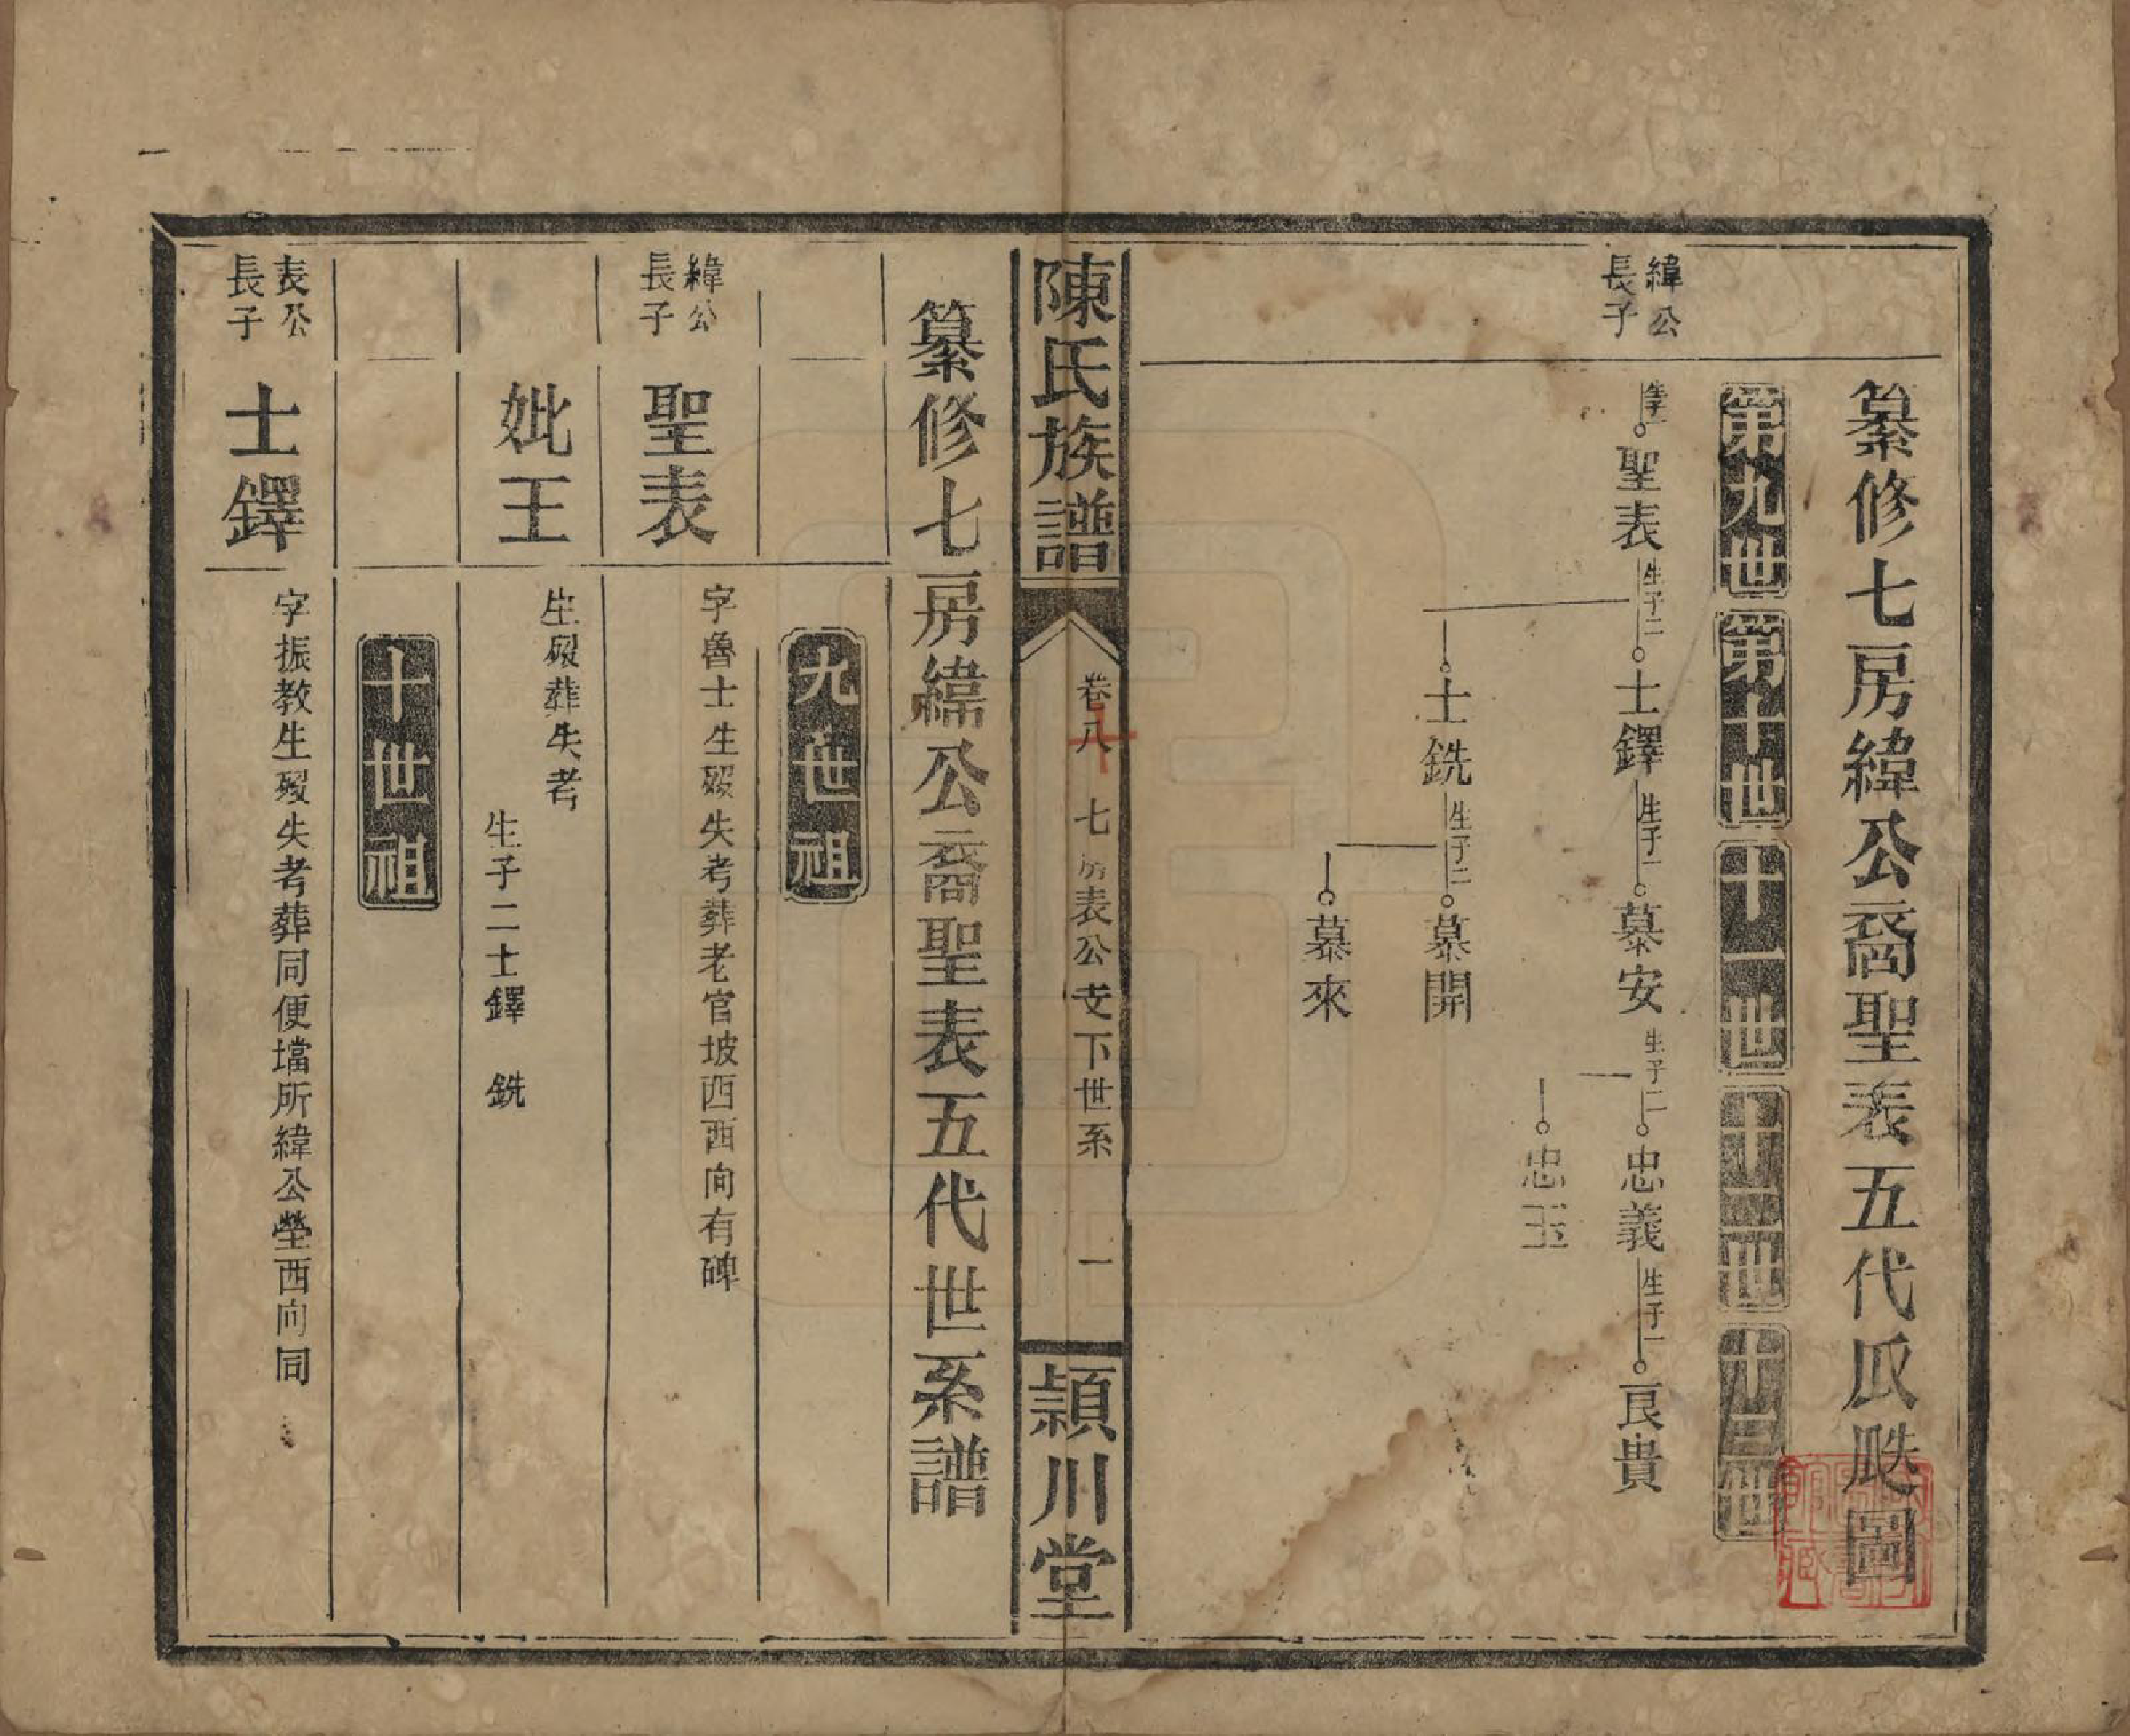 纂修七房緯公裔聖表五代瓜瓞圖
第九世
第十世
十一世
十二世
十三世
緯公
長子
生子一
聖表
生子二
士鐸
生子一
慕安
生子二
忠義
生子一
良貴
忠玉
士銑
生子二
慕開
慕來
陳氏族譜
卷八
十
七房表公支下世系
一
潁川堂
纂修七房緯公裔聖表五代世系譜
九世祖
緯公
長子
聖表
字魯士生殁失考葬老官坡酉西向有碑
妣王
生殁葬失考
生子二士鐸 銑
十世祖
表公
長子
士鐸
字振教生殁失考葬同便壋所緯公塋西向同